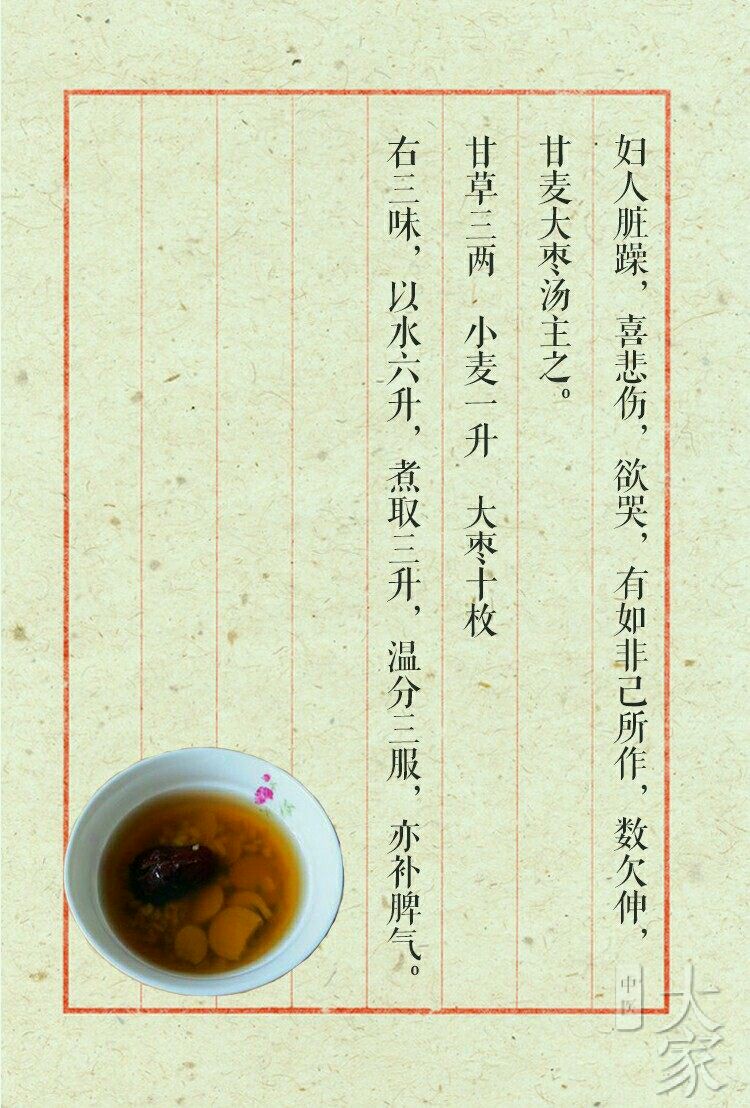 妇人脏躁，喜悲伤，欲哭，有如非己所作，数欠伸，
甘麦大枣汤主之。
甘草三两　小麦一升　大枣十枚
右三味，以水六升，煮取三升，温分三服，亦补脾气。
中医
大家